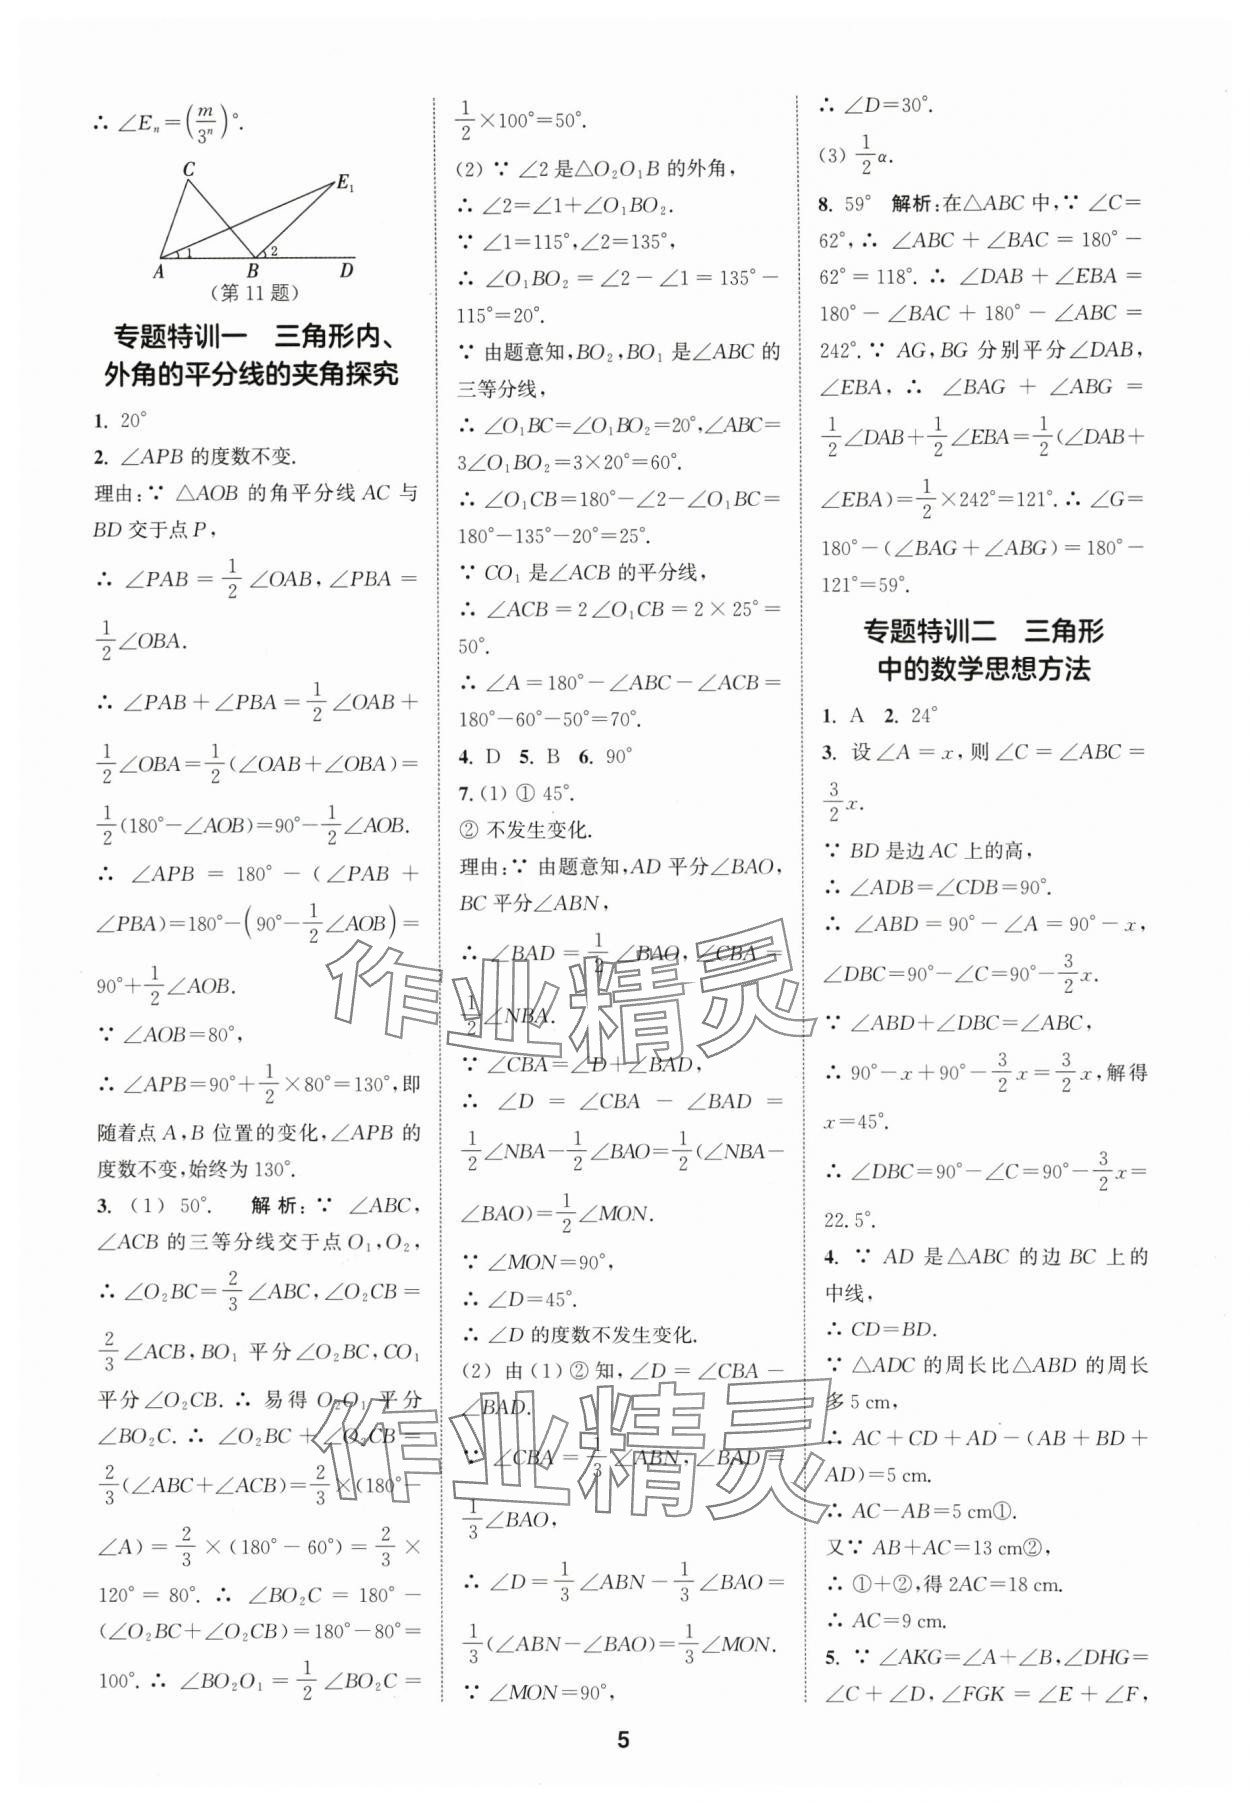 ∴ ∠Eₙ=(m/3ⁿ)°.
C
E₁
1
2
A
B
D
(第11题)
专题特训一 三角形内、
外角的平分线的夹角探究
1. 20°
2. ∠APB 的度数不变.
理由:∵ △AOB 的角平分线 AC 与
BD 交于点 P,
∴ ∠PAB = 1/2 ∠OAB, ∠PBA =
1/2 ∠OBA.
∴ ∠PAB + ∠PBA = 1/2 ∠OAB +
1/2 ∠OBA = 1/2 (∠OAB+∠OBA) =
1/2 (180°-∠AOB)=90°-1/2 ∠AOB.
∴ ∠APB = 180° - (∠PAB +
∠PBA)=180°-(90°-1/2 ∠AOB)=
90°+1/2 ∠AOB.
∵ ∠AOB=80°,
∴ ∠APB=90°+1/2×80°=130°,即
随着点 A,B 位置的变化,∠APB 的
度数不变,始终为 130°.
3. (1) 50°. 解析:∵ ∠ABC,
∠ACB 的三等分线交于点 O₁,O₂,
∴ ∠O₂BC=2/3 ∠ABC,∠O₂CB=
2/3 ∠ACB,BO₁ 平分∠O₂BC,CO₁
平分∠O₂CB.∴ 易得 O₂O₁ 平分
∠BO₂C.∴ ∠O₂BC+∠O₂CB=
2/3 (∠ABC+∠ACB)=2/3×(180°-
∠A)=2/3×(180°-60°)=2/3×
120°=80°.∴ ∠BO₂C=180°-
(∠O₂BC+∠O₂CB)=180°-80°=
100°.∴ ∠BO₂O₁=1/2 ∠BO₂C=
1/2×100°=50°.
(2) ∵ ∠2 是△O₂O₁B 的外角,
∴ ∠2=∠1+∠O₁BO₂.
∵ ∠1=115°,∠2=135°,
∴ ∠O₁BO₂=∠2-∠1=135°-
115°=20°.
∵ 由题意知,BO₂,BO₁ 是∠ABC 的
三等分线,
∴ ∠O₁BC=∠O₁BO₂=20°,∠ABC=
3∠O₁BO₂=3×20°=60°.
∴ ∠O₁CB=180°-∠2-∠O₁BC=
180°-135°-20°=25°.
∵ CO₁ 是∠ACB 的平分线,
∴ ∠ACB=2∠O₁CB=2×25°=
50°.
∴ ∠A=180°-∠ABC-∠ACB=
180°-60°-50°=70°.
4. D 5. B 6. 90°
7. (1) ① 45°.
② 不发生变化.
理由:∵ 由题意知,AD 平分∠BAO,
BC 平分∠ABN,
∴ ∠BAD=1/2 ∠BAO,∠CBA=
1/2 ∠NBA.
∵ ∠CBA=∠D+∠BAD,
∴ ∠D = ∠CBA - ∠BAD =
1/2 ∠NBA-1/2 ∠BAO=1/2 (∠NBA-
∠BAO)=1/2 ∠MON.
∵ ∠MON=90°,
∴ ∠D=45°.
∴ ∠D 的度数不发生变化.
(2) 由(1)②知,∠D=∠CBA-
∠BAD.
∵ ∠CBA=1/3 ∠ABN,∠BAD=
1/3 ∠BAO,
∴ ∠D=1/3 ∠ABN-1/3 ∠BAO=
1/3 (∠ABN-∠BAO)=1/3 ∠MON.
∵ ∠MON=90°,
∴ ∠D=30°.
(3) 1/2 α.
8. 59° 解析:在△ABC 中,∵ ∠C=
62°,∴ ∠ABC+∠BAC=180°-
62°=118°.∴ ∠DAB+∠EBA=
180°-∠BAC+180°-∠ABC=
242°.∵ AG,BG 分别平分∠DAB,
∠EBA,∴ ∠BAG+∠ABG=
1/2 ∠DAB+1/2 ∠EBA=1/2 (∠DAB+
∠EBA)=1/2×242°=121°.∴ ∠G=
180°-(∠BAG+∠ABG)=180°-
121°=59°.
专题特训二 三角形
中的数学思想方法
1. A 2. 24°
3. 设∠A=x,则∠C=∠ABC=
3/2 x.
∵ BD 是边 AC 上的高,
∴ ∠ADB=∠CDB=90°.
∴ ∠ABD=90°-∠A=90°-x,
∠DBC=90°-∠C=90°-3/2 x.
∵ ∠ABD+∠DBC=∠ABC,
∴ 90°-x+90°-3/2 x=3/2 x,解得
x=45°.
∴ ∠DBC=90°-∠C=90°-3/2 x=
22.5°.
4. ∵ AD 是△ABC 的边 BC 上的
中线,
∴ CD=BD.
∵ △ADC 的周长比△ABD 的周长
多 5 cm,
∴ AC+CD+AD-(AB+BD+
AD)=5 cm.
∴ AC-AB=5 cm①.
又∵ AB+AC=13 cm②,
∴ ①+②,得 2AC=18 cm.
∴ AC=9 cm.
5. ∵ ∠AKG=∠A+∠B,∠DHG=
∠C+∠D,∠FGK=∠E+∠F,
作业精灵
作业精灵
5